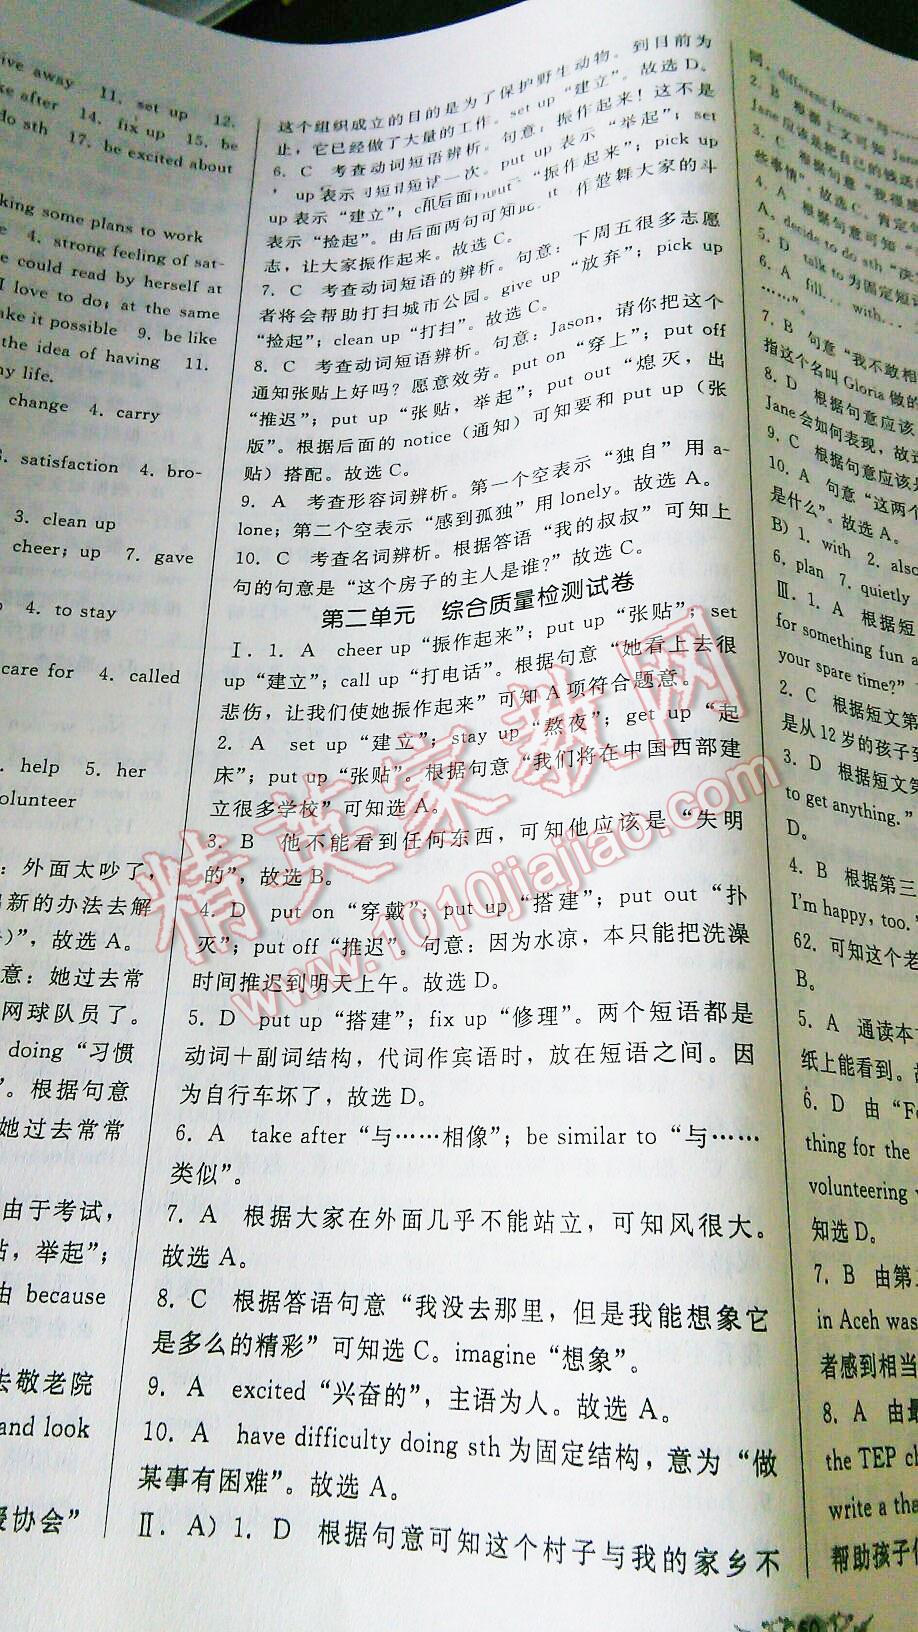 ive away 11. set up 12.
ke after 14. fix up 15. be
do sth 17. be excited about
king some plans to work
e 4. strong feeling of sat-
e could read by herself at
I love to do; at the same
ake it possible 9. be like
the idea of having 11.
ny life.
change 4. carry
3. satisfaction 4. bro-
3. clean up
cheer; up 7. gave
4. to stay
care for 4. called
. help 5. her
olunteer
：外面太吵了，
新的办法去解
)”，故选 A。
意：她过去常
网球队员了。
doing “习惯
”。根据句意
她过去常常
由于考试，
占，举起”；
由 because
去敬老院
and look
爱协会”
这个组织成立的目的是为了保护野生动物。到目前为
止，它已经做了大量的工作。set up “建立”。故选 D。
6. C 考查动词短语辨析。句意：振作起来！这不是
一次。put up 表示 “举起”；set
up 表示 “建立”；
表示 “捡起”。由后面两句可知
志，让大家振作起来。故选 C。
7. C 考查动词短语的辨析。句意：下周五很多志愿
者将会帮助打扫城市公园。give up “放弃”；pick up
“捡起”；clean up “打扫”。故选 C。
8. C 考查动词短语辨析。句意：Jason，请你把这个
通知张贴上好吗？愿意效劳。put on “穿上”；put off
“推迟”；put up “张贴，举起”；put out “熄灭，出
版”。根据后面的 notice（通知）可知要和 put up（张
贴）搭配。故选 C。
9. A 考查形容词辨析。第一个空表示 “独自” 用 a-
lone；第二个空表示 “感到孤独” 用 lonely。故选 A。
10. C 考查名词辨析。根据答语 “我的叔叔” 可知上
句的句意是 “这个房子的主人是谁？” 故选 C。
第二单元 综合质量检测试卷
Ⅰ. 1. A cheer up “振作起来”；put up “张贴”；set
up “建立”；call up “打电话”。根据句意 “她看上去很
悲伤，让我们使她振作起来” 可知 A 项符合题意。
2. A set up “建立”；stay up “熬夜”；get up “起
床”；put up “张贴”。根据句意 “我们将在中国西部建
立很多学校” 可知选 A。
3. B 他不能看到任何东西，可知他应该是 “失明
的”，故选 B。
4. D put on “穿戴”；put up “搭建”；put out “扑
灭”；put off “推迟”。句意：因为水凉，本只能把洗澡
时间推迟到明天上午。故选 D。
5. D put up “搭建”；fix up “修理”。两个短语都是
动词＋副词结构，代词作宾语时，放在短语之间。因
为自行车坏了，故选 D。
6. A take after “与……相像”；be similar to “与……
类似”。
7. A 根据大家在外面几乎不能站立，可知风很大。
故选 A。
8. C 根据答语句意 “我没去那里，但是我能想象它
是多么的精彩” 可知选 C。imagine “想象”。
9. A excited “兴奋的”，主语为人。故选 A。
10. A have difficulty doing sth 为固定结构，意为 “做
某事有困难”。故选 A。
Ⅱ. A) 1. D 根据句意可知这个村子与我的家乡不
同，different from “与
2. B 根据上文可知 Jane
Jane 应该是把自己的钱送
3. C 根据句意 “我很
些事情”，故选 C。肯定句
4. A 根据句意可知 “
A。decide to do sth “决
5. D talk to 为固定短
6. A fill... with...
……”。
7. B 句意 “我不敢相
指这个名叫 Gloria 做的
8. D 根据句意应该
Jane 会如何表现，故选
9. C 根据句意应该是
10. A 句意 “这两个
是什么”。故选 A。
B) 1. with 2. also
6. plan 7. quietly
Ⅲ. 1. A 根据短
for something fun a
your spare time?”
2. C 根据短文第
是从 12 岁的孩子到
3. D 根据短文第
to get anything.”
D。
4. B 根据第三
I'm happy, too.
62. 可知这个老
B。
5. A 通读本
纸上能看到。故
6. D 由 “Fo
thing for the
volunteering
知选 D。
7. B 由第
in Aceh was
者感到相当
8. A 由最
the TEP ch
write a tha
帮助孩子们
精英家教网
www.1010jiajiao.com
60